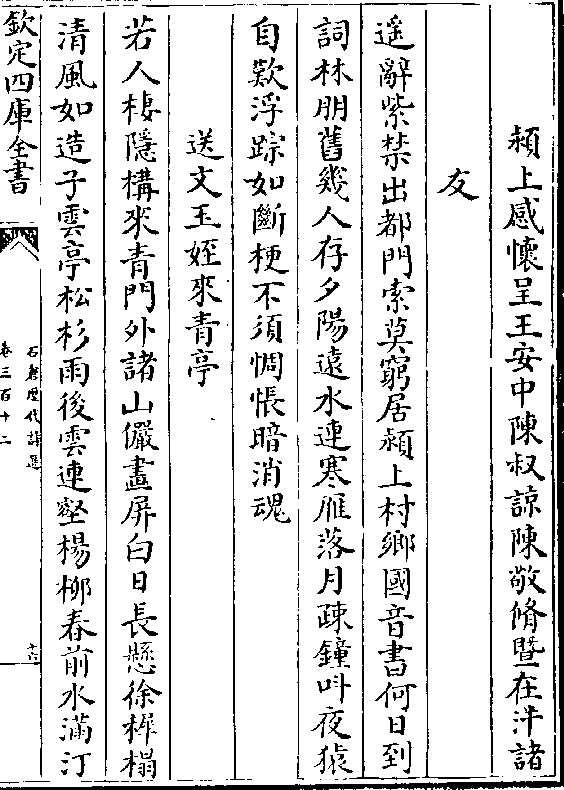 潁上感懷呈王安中陳叔諒陳敬脩暨在泮諸
友
遥辭紫禁出都門索莫窮居潁上村鄉國音書何日到
詞林朋舊幾人存夕陽遠水連寒雁落月疎鐘呌夜猿
自歎浮踪如斷梗不須惆悵暗消魂
送文玉姪來青亭
若人棲隱構來青門外諸山儼畫屏白日長懸徐穉榻
清風如造子雲亭松杉雨後雲連壑楊栁春前水滿汀
欽定四庫全書
石倉歴代詩選
卷三百十二
十六